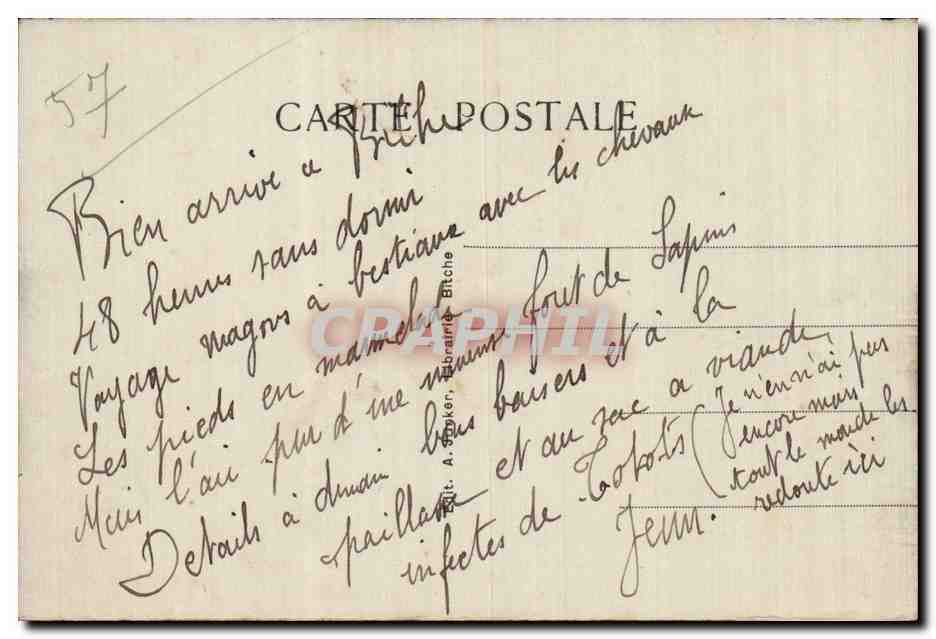 57
CARTE POSTALE
Bien arrivé à Bitche
48 heures sans dormir
Voyage wagons à bestiaux avec les chevaux
Les pieds en marmelade
Mais l'air pur d'une immense foret de Sapins
Details à demain bons baisers et à la
paillasse et au sac a viande,
infectes de Totots (Je n'en n'ai pas
encore mais
tout le monde les
redoute ici
Jean.
Edit. A. Librairie, Bitche
CRAPHIL